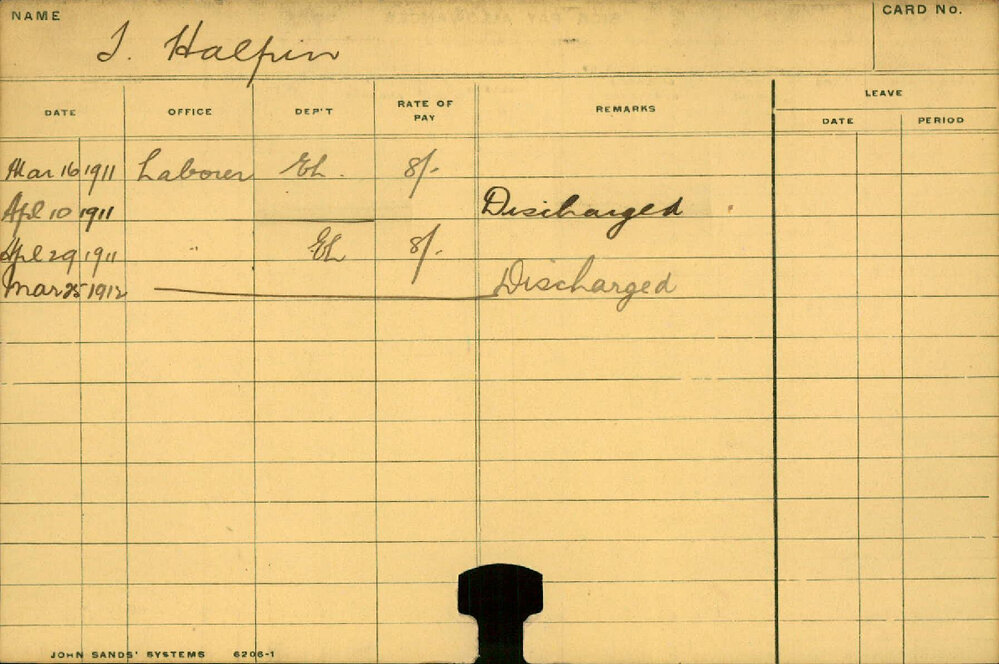 NAME
CARD No.
J. Halpin
LEAVE
DATE OFFICE DEP'T RATE OF PAY REMARKS DATE PERIOD
Mar 16 1911 Laborer EL. 8/-
Apl 10 1911 Discharged
Apl 29 1911 " EL 8/-
Mar 25 1912 Discharged
JOHN SANDS' SYSTEMS 6206-1